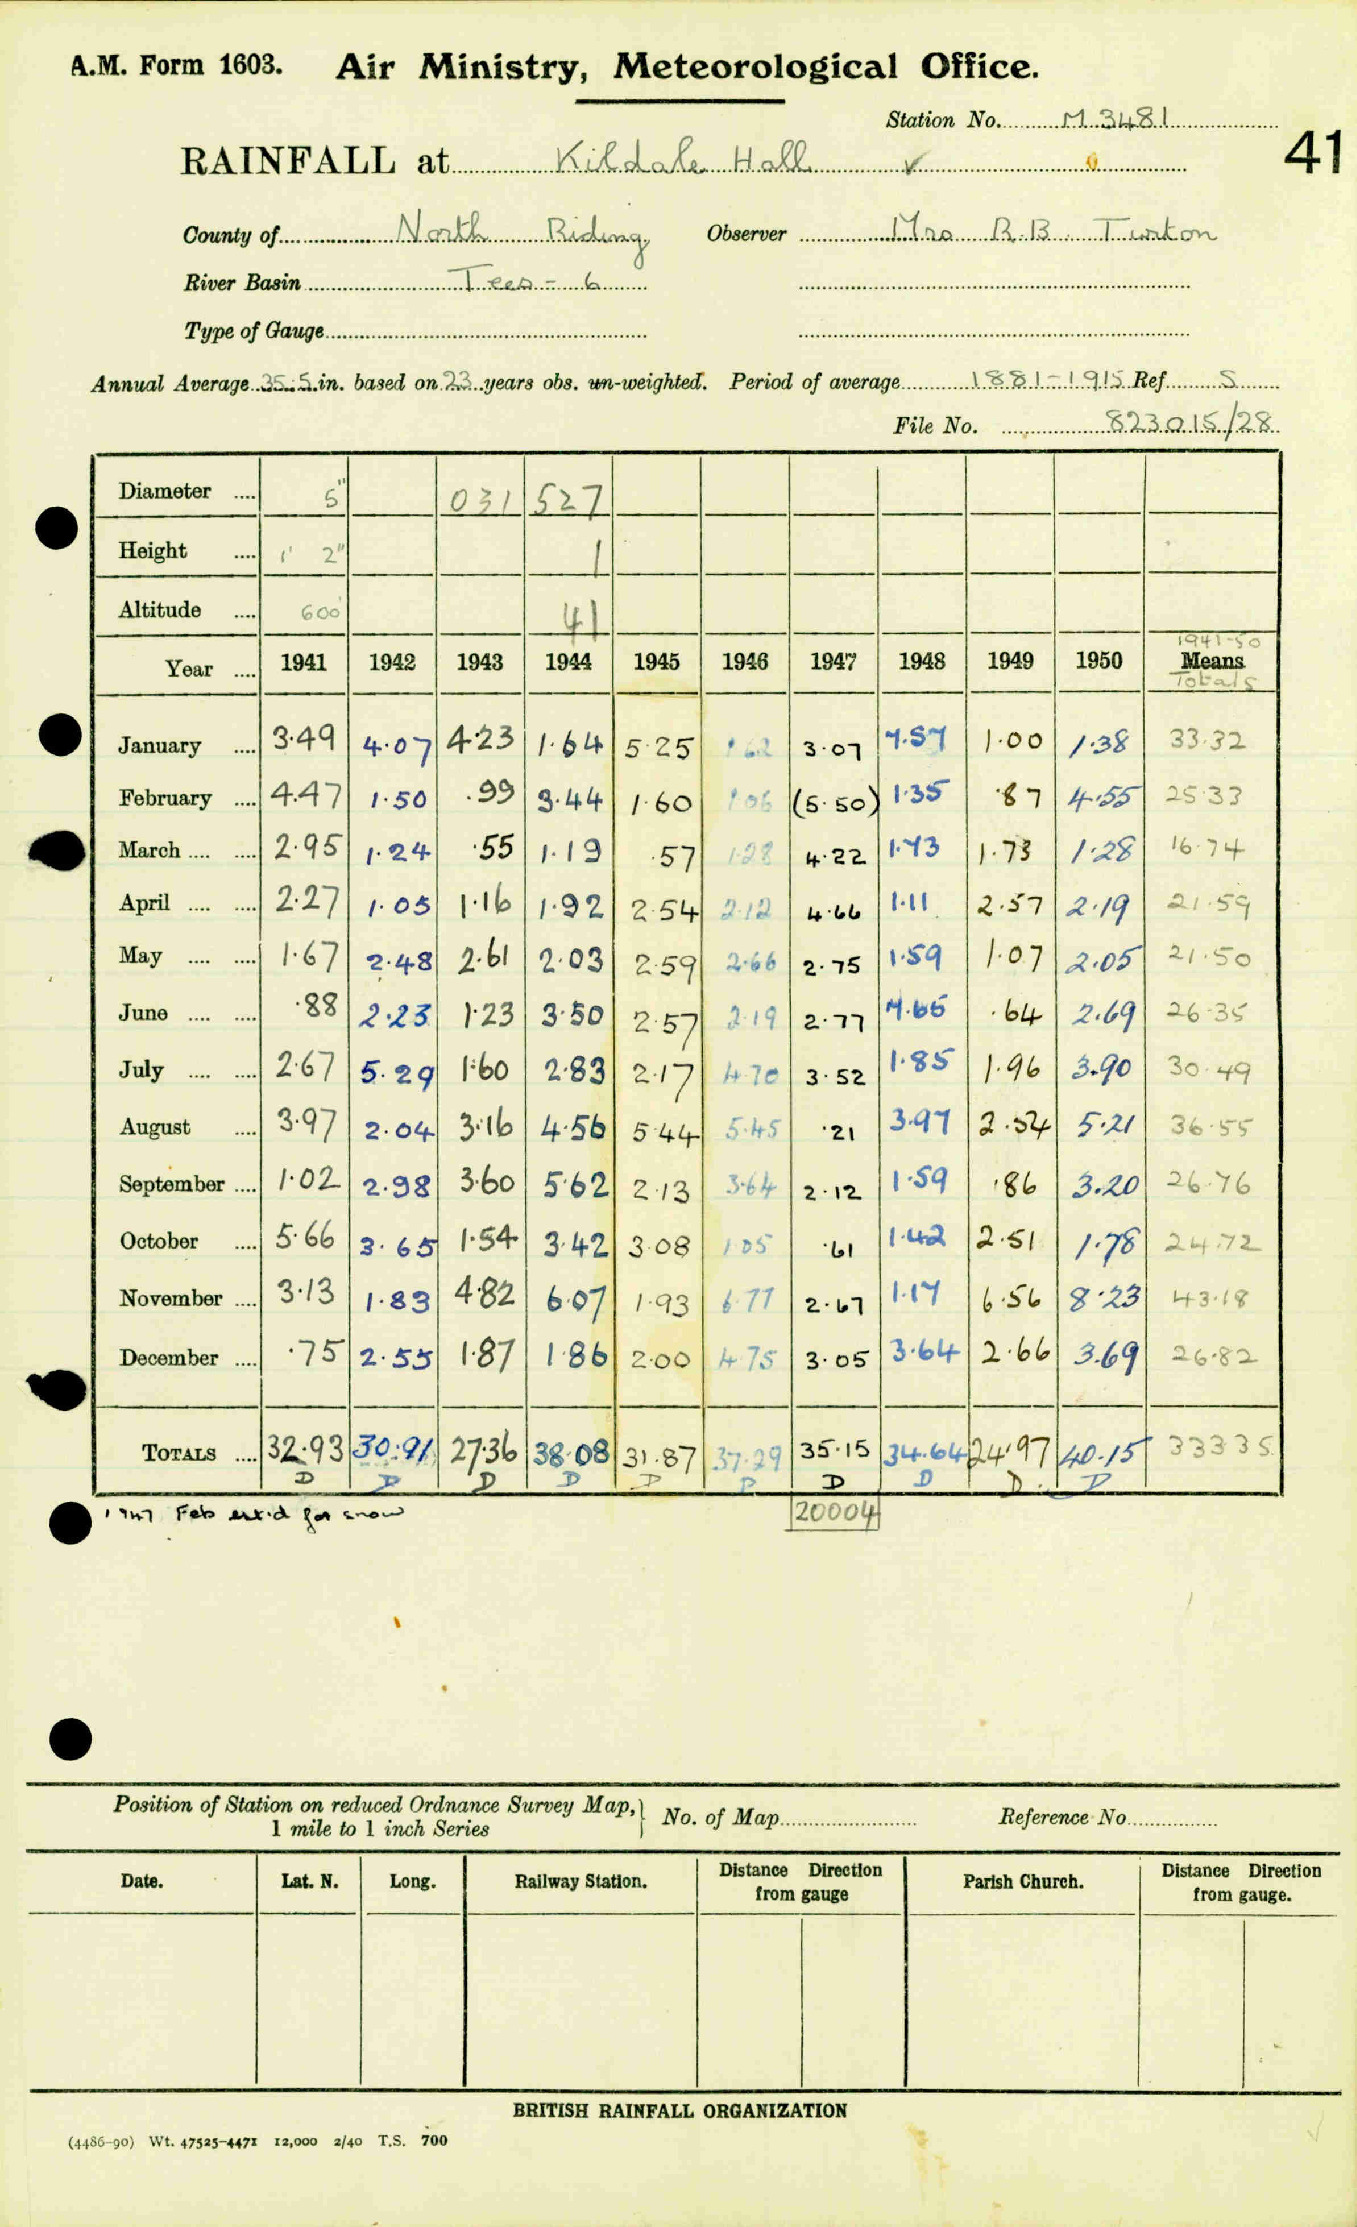 A.M. Form 1603. Air Ministry, Meteorological Office.
Station No. M 3481
41
RAINFALL at Kildale Hall ✓
County of North Riding Observer Mrs R.B. Turton
River Basin Tees - 6
Type of Gauge
Annual Average 35.5 in. based on 23 years obs. un-weighted. Period of average 1881-1915 Ref S
File No. 823015/28
Diameter .... 5" 031 527
Height .... 1' 2" 1
Altitude .... 600' 41
1941-50
Year .... 1941 1942 1943 1944 1945 1946 1947 1948 1949 1950 Means
Totals
January .... 3.49 4.07 4.23 1.64 5.25 1.62 3.07 7.57 1.00 1.38 33.32
February .... 4.47 1.50 .99 3.44 1.60 1.06 (5.50) 1.35 .87 4.55 25.33
March .... .... 2.95 1.24 .55 1.19 .57 1.28 4.22 1.73 1.73 1.28 16.74
April .... .... 2.27 1.05 1.16 1.92 2.54 2.12 4.66 1.11 2.57 2.19 21.59
May .... .... 1.67 2.48 2.61 2.03 2.59 2.66 2.75 1.59 1.07 2.05 21.50
June .... .... .88 2.23 1.23 3.50 2.57 2.19 2.77 7.65 .64 2.69 26.35
July .... .... 2.67 5.29 1.60 2.83 2.17 4.70 3.52 1.85 1.96 3.90 30.49
August .... 3.97 2.04 3.16 4.56 5.44 5.45 .21 3.97 2.54 5.21 36.55
September .... 1.02 2.98 3.60 5.62 2.13 3.64 2.12 1.59 .86 3.20 26.76
October .... 5.66 3.65 1.54 3.42 3.08 1.05 .61 1.42 2.51 1.78 24.72
November .... 3.13 1.83 4.82 6.07 1.93 6.77 2.67 1.17 6.56 8.23 43.18
December .... .75 2.55 1.87 1.86 2.00 4.75 3.05 3.64 2.66 3.69 26.82
TOTALS .... 32.93 30.91 27.36 38.08 31.87 37.29 35.15 34.64 24.97 40.15 333 35
D D D D D D D D D D
1947 Feb est'd for snow 20004
Position of Station on reduced Ordnance Survey Map,} No. of Map Reference No
1 mile to 1 inch Series
Date. Lat. N. Long. Railway Station. Distance Direction from gauge Parish Church. Distance Direction from gauge.
BRITISH RAINFALL ORGANIZATION
(4486-90) Wt. 47525-4471 12,000 2/40 T.S. 700